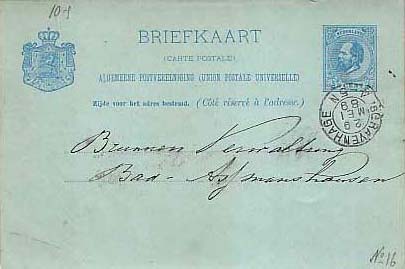 10-1
BRIEFKAART
(CARTE POSTALE)
ALGEMEENE POSTVEREENIGING (UNION POSTALE UNIVERSELLE)
Zijde voor het adres bestemd. (Côté réservé à l'adresse.)
NEDERLAND
'S GRAVENHAGE
29
MEI
89
Brunnen Verwaltung
Bad-Assmannshausen
No 16